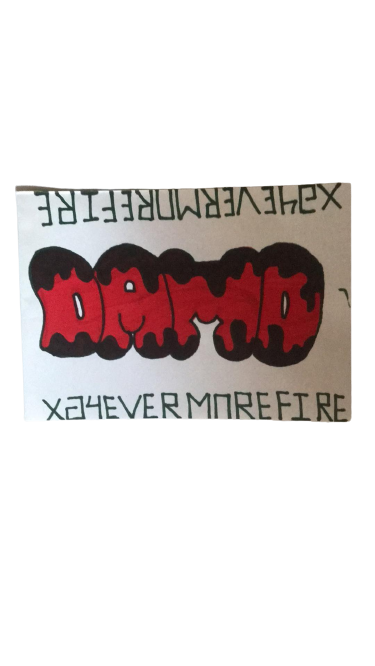 XA4EVERMOREFIRE
DAMO
XA4EVERMOREFIRE